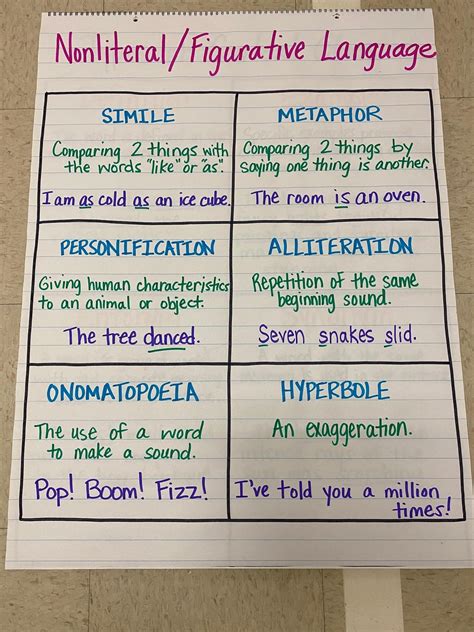 Nonliteral/Figurative Language
SIMILE
Comparing 2 things with
the words "like" or "as".
I am as cold as an ice cube.
METAPHOR
Comparing 2 things by
saying one thing is another.
The room is an oven.
PERSONIFICATION
Giving human characteristics
to an animal or object.
The tree danced.
ALLITERATION
Repetition of the same
beginning sound.
Seven snakes slid.
ONOMATOPOEIA
The use of a word
to make a sound.
Pop! Boom! Fizz!
HYPERBOLE
An exaggeration.
I've told you a million
times!